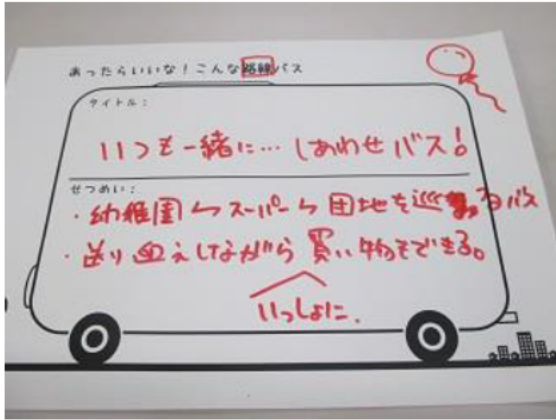 あったらいいな！こんな路線バス
タイトル：
いつも一緒に…しあわせバス！
せつめい：
・幼稚園↪スーパー↪団地を巡るバス
・送り迎えしながら買い物もできる。
いっしょに．